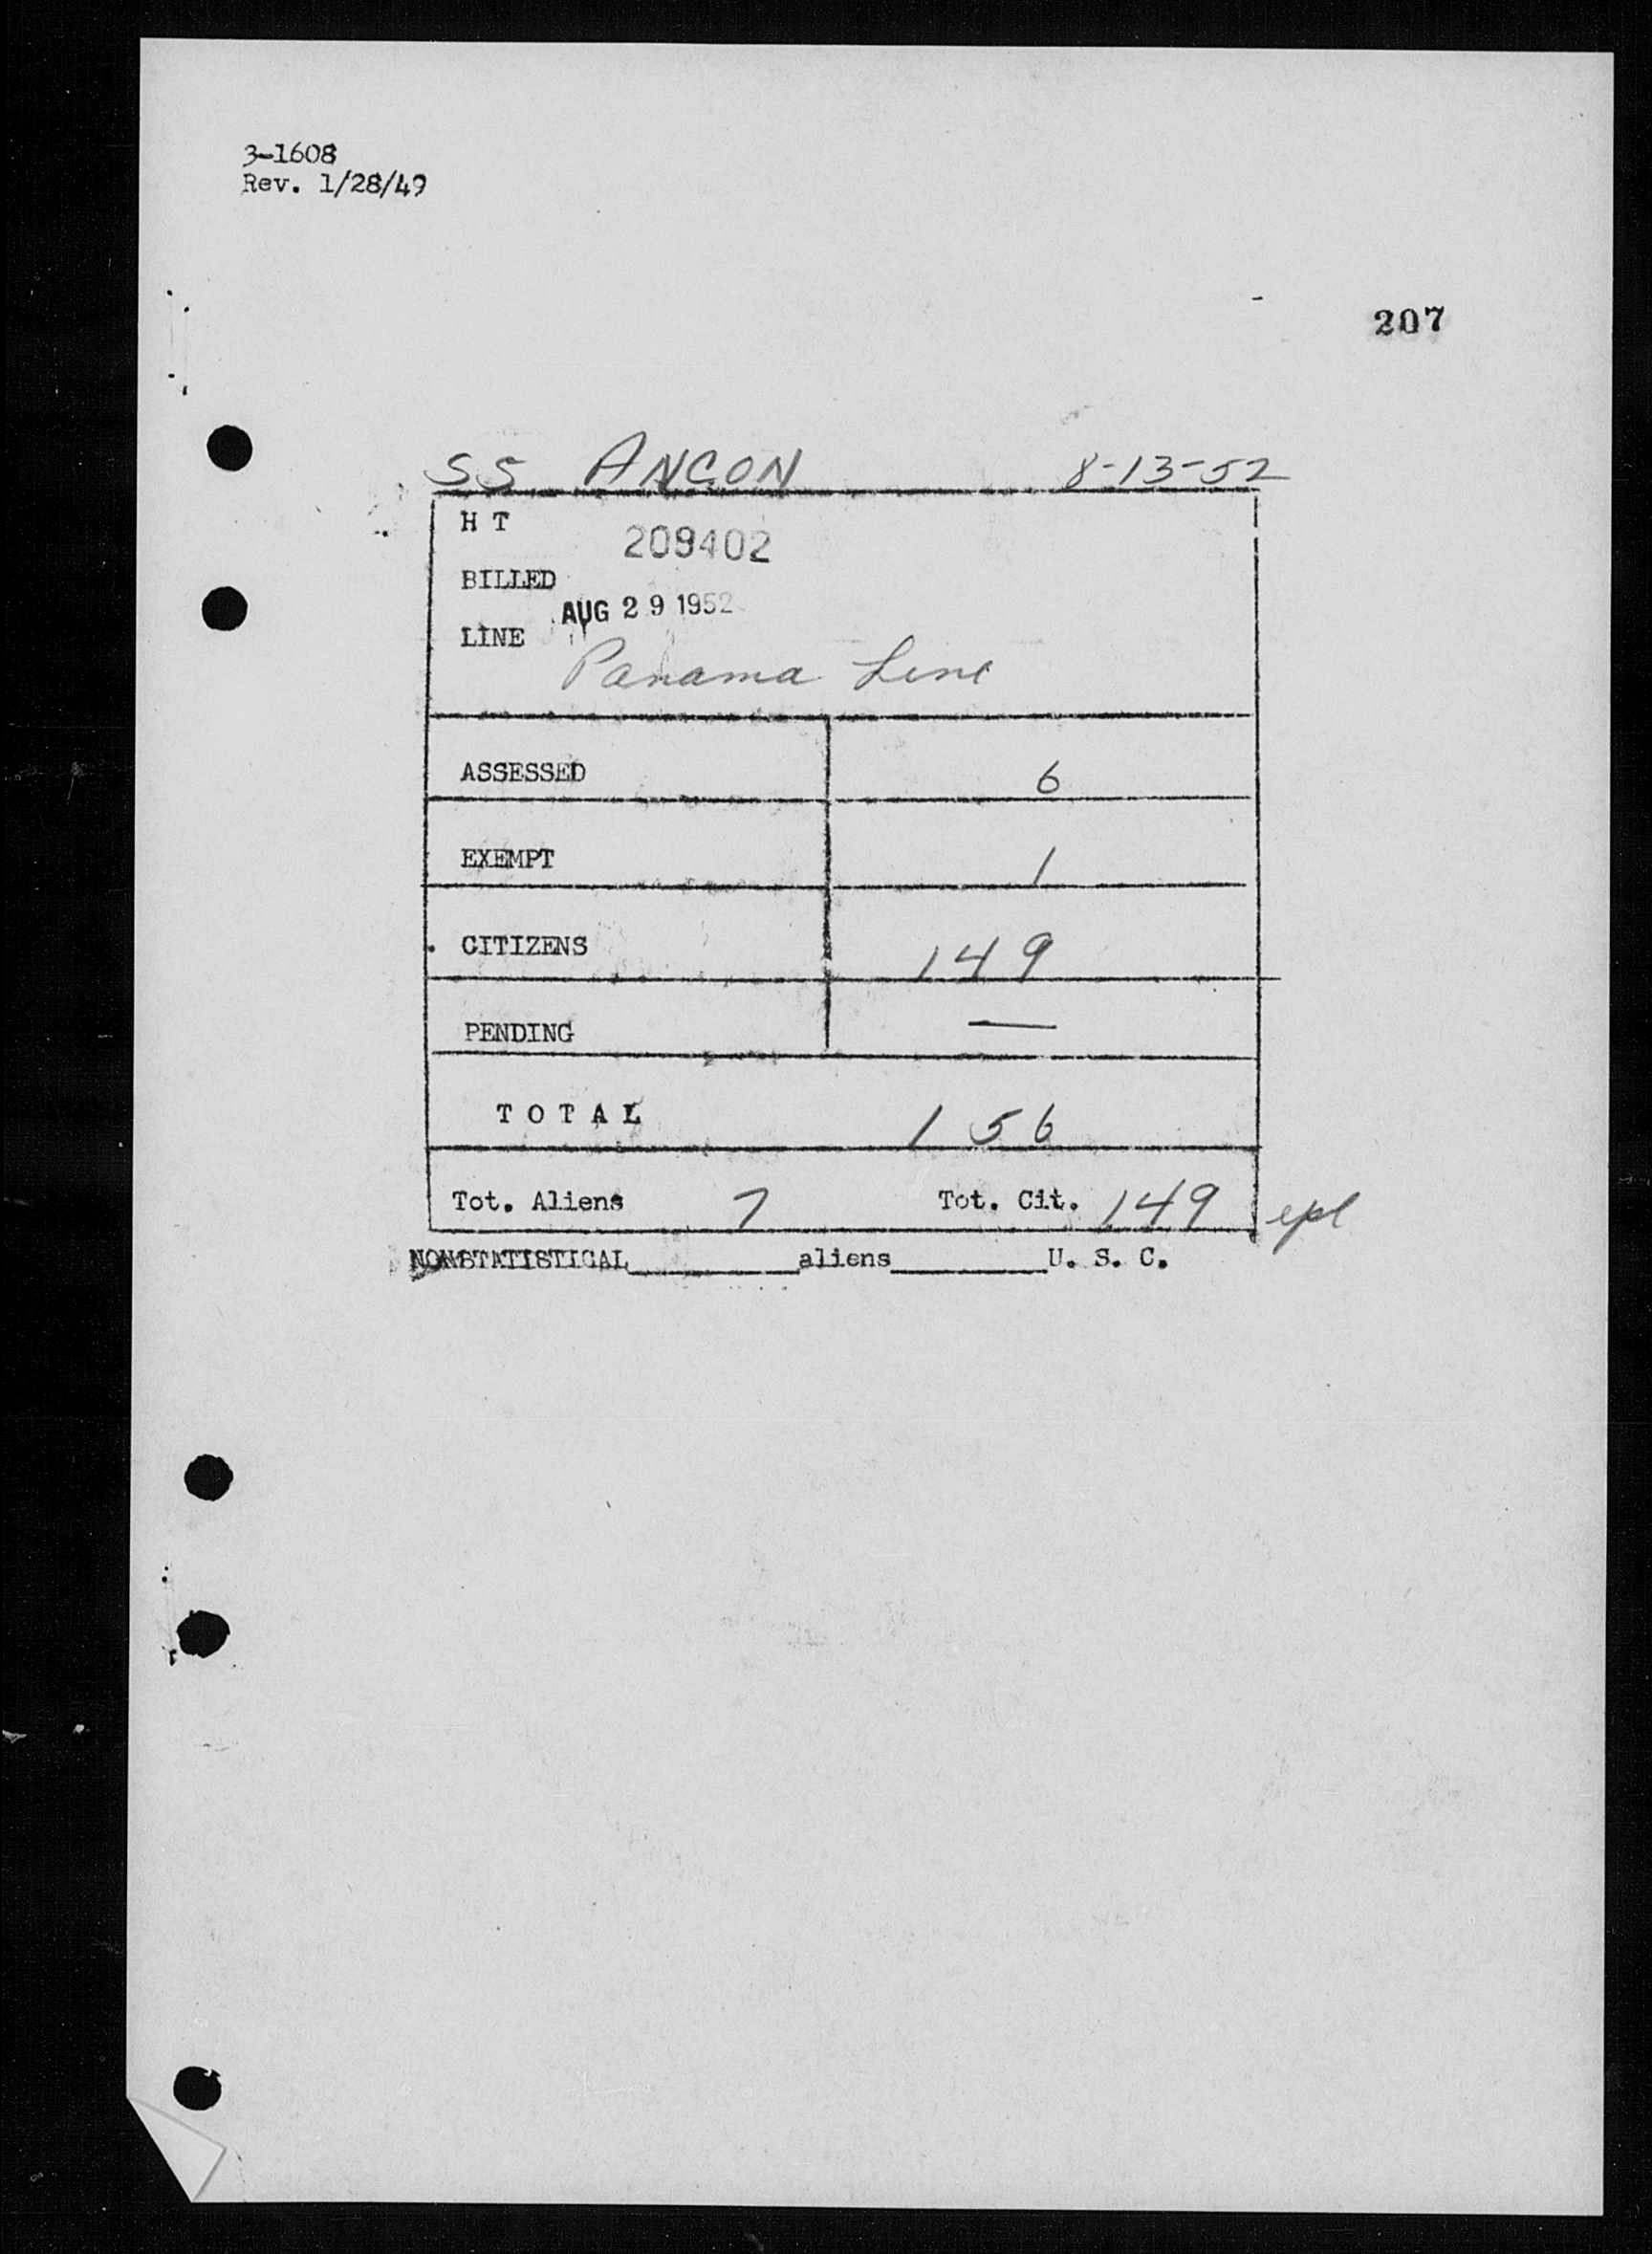 3-1608
Rev. 1/28/49
207
SS ANCON 8-13-52
H T 209402
BILLED
AUG 29 1952
LINE
Panama Line
ASSESSED 6
EXEMPT 1
CITIZENS 149
PENDING —
T O T A L 156
Tot. Aliens 7 Tot. Cit. 149 epl
NONSTATISTICAL__________aliens__________U. S. C.